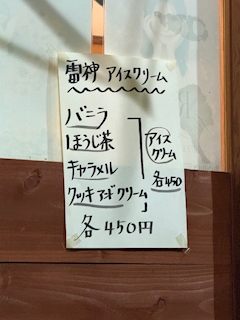 雷神 アイスクリーム
バニラ
ほうじ茶
キャラメル
クッキーアンドクリーム
アイス
クリーム
各450
各450円